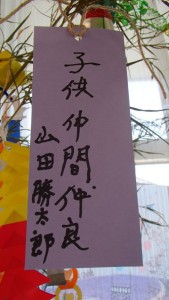 子供仲間仲良
山田勝太郎